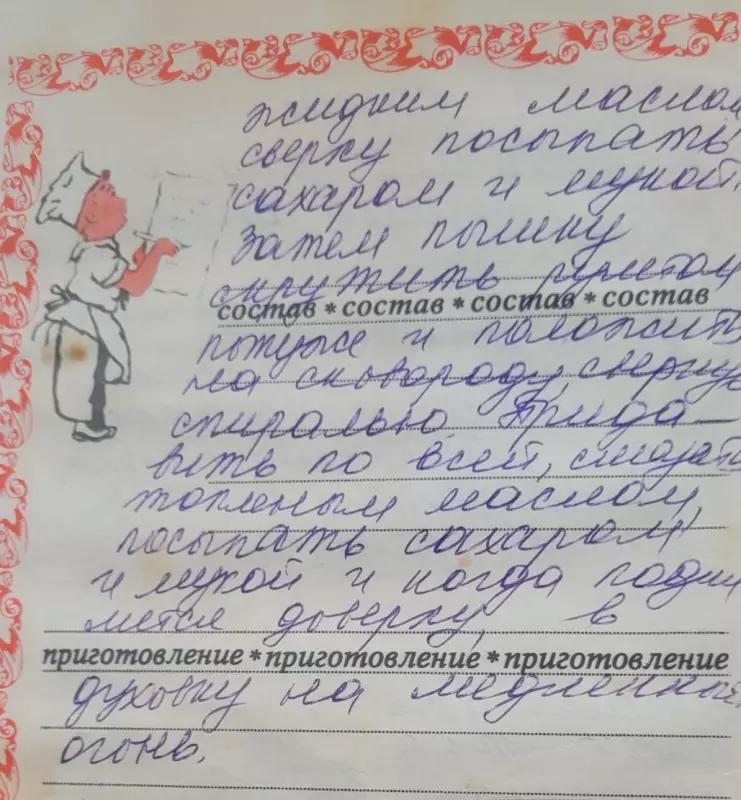 жидким маслом
сверху посыпать
сахаром и мукой.
Затем пышку
скружить рулетом
состав * состав * состав * состав
потуже и положить
на сковороду, сверну
спиралью. Прида-
вить по всей, смазать
топленым маслом,
посыпать сахаром
и мукой и когда подни
мется доверху, в
приготовление * приготовление * приготовление
духовку на медленный
огонь.